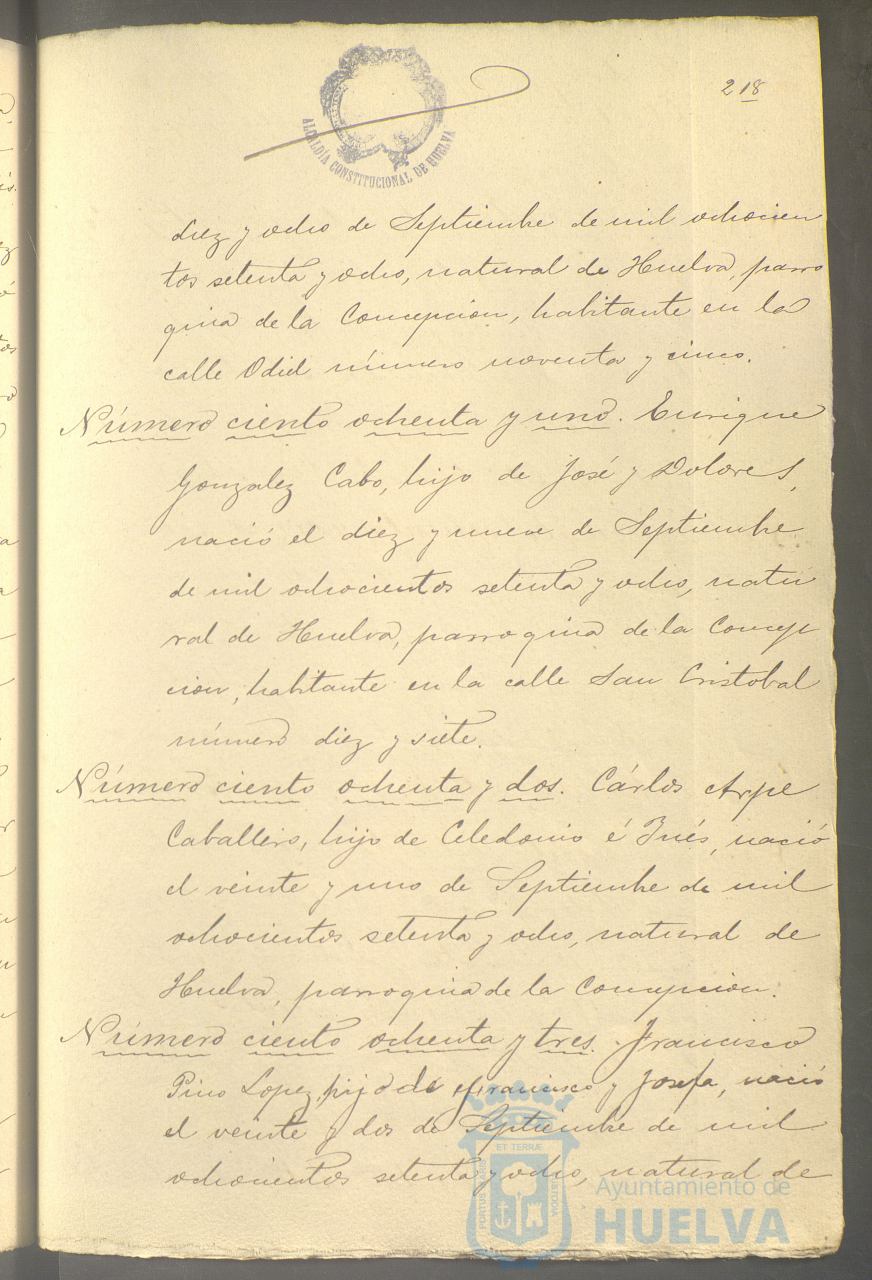 218
ALCALDÍA CONSTITUCIONAL DE HUELVA
diez y ocho de Septiembre de mil ochocien
tos setenta y ocho, natural de Huelva, parro
quia de la Concepcion, habitante en la
calle Odiel número noventa y cinco.
Número ciento ochenta y uno. Enrique
Gonzalez Cabo, hijo de José y Dolores,
nació el diez y nueve de Septiembre
de mil ochocientos setenta y ocho, natu
ral de Huelva, parroquia de la Concep
cion, habitante en la calle San Cristobal
número diez y siete.
Número ciento ochenta y dos. Cárlos Arpe
Caballero, hijo de Celedonio é Inés, nació
el veinte y uno de Septiembre de mil
ochocientos setenta y ocho, natural de
Huelva, parroquia de la Concepcion.
Número ciento ochenta y tres. Francisco
Pino Lopez, hijo de Francisco y Josefa, nació
el veinte y dos de Septiembre de mil
ochocientos setenta y ocho, natural de
PORTUS MARIS ET TERRÆ CUSTODIA
Ayuntamiento de
HUELVA